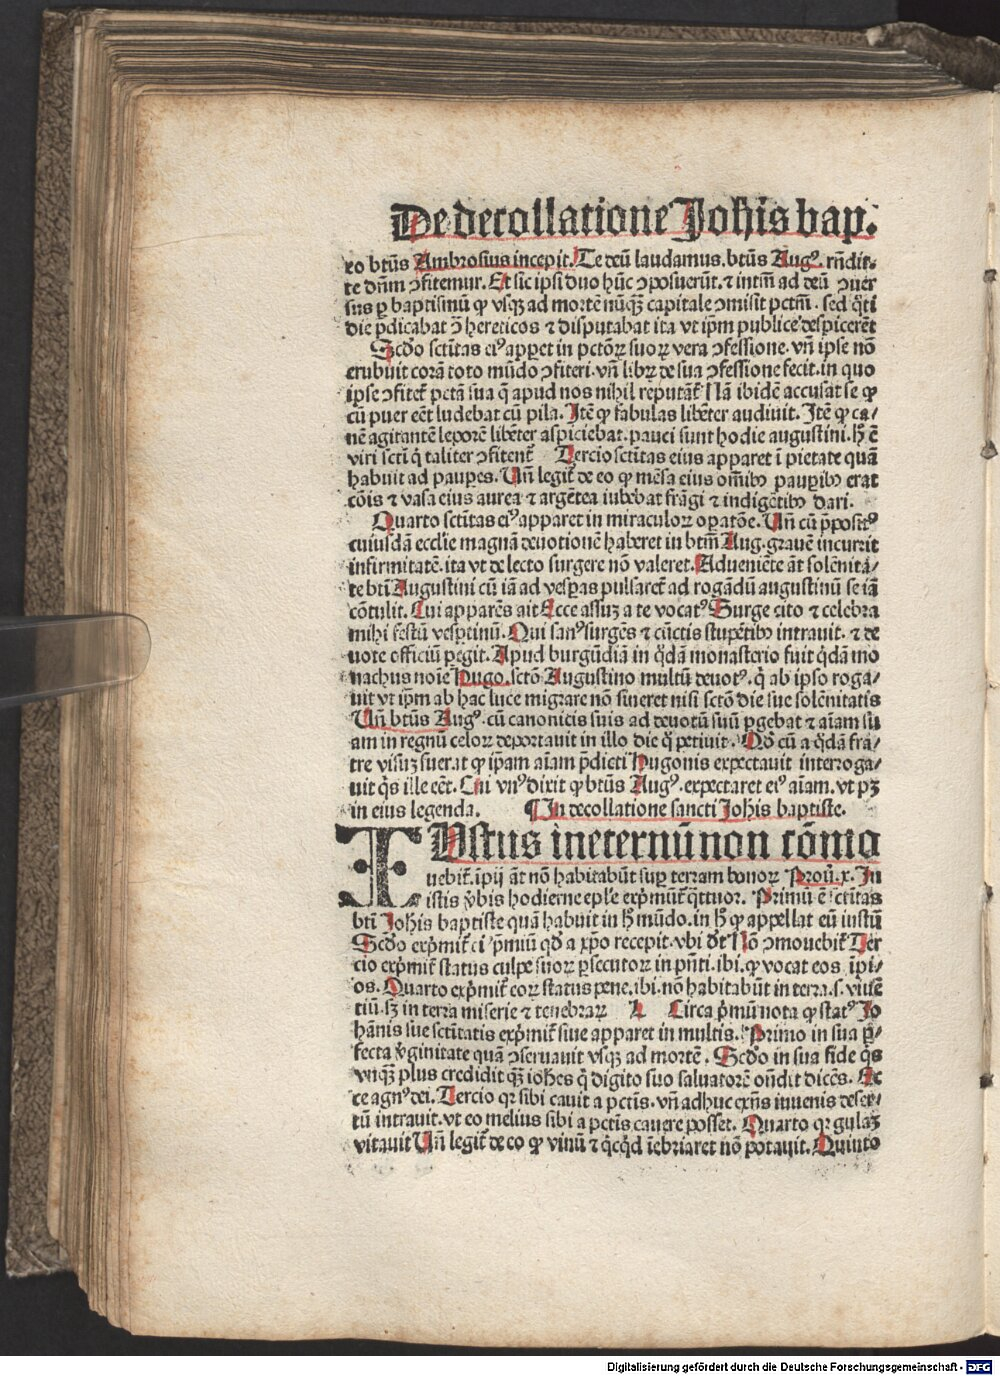 De decollatione Johis bap.
eo btūs Ambrosius incepit. Te deū laudamus. btūs Augꝰ. rn̄dit.
te dn̄m ꝯfitemur. Et sic ipsi duo hūc ꝯposuerūt. ⁊ intm̄ ad deū ꝯuer
sus ꝑ baptismū ꝙ vsqꝫ ad mortē nūqꝫ capitale ꝯmisit pctm̄. sed q̄ti
die p̄dicabat ꝯ̄ hereticos ⁊ disputabat ita vt ip̄m publice despicerēt
Scd̄o sctītas eiꝰ apꝑet in pctōꝝ suoꝝ vera ꝯfessione. vn̄ ipse nō
erubuit corā toto mūdo ꝯfiteri. vn̄ libꝝ de sua ꝯfessione fecit. in quo
ipse ꝯfitet᷑ pctā sua q̄ apud nos nihil reputāt᷑ Nā ibidē accusat se ꝙ
cū puer eēt ludebat cū pila. Itē ꝙ fabulas libēter audiuit. Itē ꝙ ca/
nē agitantē leporē libēter aspiciebat. pauci sunt hodie augustini. hͦ ē
viri sctī q̄ taliter ꝯfitent᷑ Tercio sctītas eius apparet ī pietate quā
habuit ad pauꝑes. Vn̄ legit᷑ de eo ꝙ mēsa eius om̄ibꝰ pauꝑibꝰ erat
cōis ⁊ vasa eius aurea ⁊ argētea iubebat frāgi ⁊ indigētibꝰ dari.
Quarto sctītas eiꝰ apparet in miraculoꝝ oꝑatōe. Vn̄ cū p̄positꝰ
cuiusdā eccl̄ie magnā deuotionē haberet in btm̄ Aug. grauē incurrit
infirmitatē. ita vt de lecto surgere nō valeret. Adueniēte āt solēnita/
te btī Augustini cū iā ad vesꝑas pulsaret᷑ ad rogādū augustinū se iā
cōtulit. Cui apparēs ait Ecce assuꝫ a te vocatꝰ Surge cito ⁊ celebra
mihi festū vesꝑtinū. Qui sanꝰ surgēs ⁊ cūctis stupētibꝰ intrauit. ⁊ de
uote officiū ꝑegit. Apud burgūdiā in q̄dā monasterio fuit q̄dā mo
nachus noīe Hugo. sctō Augustino multū deuotꝰ. q̄ ab ipso roga/
uit vt ip̄m ab hac luce migrare nō sineret nisi sctō die sue solēnitatis
Vn̄ btūs Augꝰ. cū canonicis suis ad deuotū suū ꝑgebat ⁊ aīam su
am in regnū celoꝝ deportauit in illo die q̄ petiuit. Qd̄ cū a q̄dā fra/
tre visuꝫ fuerat ꝙ ip̄am aīam p̄dicti Hugonis expectauit interroga/
uit q̄s ille eēt. Cui vnꝰ dixit ꝙ btūs Augꝰ. expectaret eiꝰ aīam. vt pꝫ
in eius legenda. ¶ In decollatione sancti Johis baptiste.
IUstus in eternū non cōmo
uebit᷑. īpij āt nō habitabūt suꝑ terram bonoꝝ Prou̅. x. In
istis v̄bis hodierne epl̄e exp̄mūt᷑ q̄ttuor. Primū ē sctītas
btī Johis baptiste quā habuit in hͦ mūdo. in hͦ ꝙ appellat eū iustū
Scd̄o exp̄mit᷑ eiꝰ p̄miū qd̄ a xp̄o recepit. vbi dr̄ Nō ꝯmouebit᷑ Ter
cio exp̄mit᷑ status culpe suoꝝ ꝑsecutoꝝ in pn̄ti. ibi. ꝙ vocat eos īpi/
os. Quarto exp̄mit᷑ eoꝝ status pene. ibi. nō habitabūt in terra. s. viuē
tiū. sꝫ in terra miserie ⁊ tenebraꝝ A Circa p̄mū nota ꝙ statꝰ Jo
hānis sue sctītatis exp̄mit᷑ siue apparet in multis. Primo in sua ꝑ/
fecta v̄ginitate quā ꝯseruauit vsqꝫ ad mortē. Scd̄o in sua fide q̄s
vnqꝫ plus credidit qꝫ iohes q̄ digito suo saluatorē on̄dit dicēs. Ec
ce agnꝰ dei. Tercio qꝛ sibi cauit a pctīs. vn̄ adhuc exn̄s iuuenis deser/
tū intrauit. vt eo melius sibi a pctīs cauere posset. Quarto qꝛ gulaꝫ
vitauit Vn̄ legit᷑ de eo ꝙ vinū ⁊ q̄cq̄d īebriaret nō potauit. Quinto
Digitalisierung gefördert durch die Deutsche Forschungsgemeinschaft - DFG